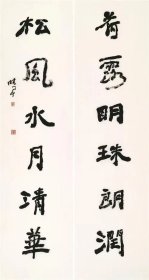 荷露明珠朗潤
松風水月清華